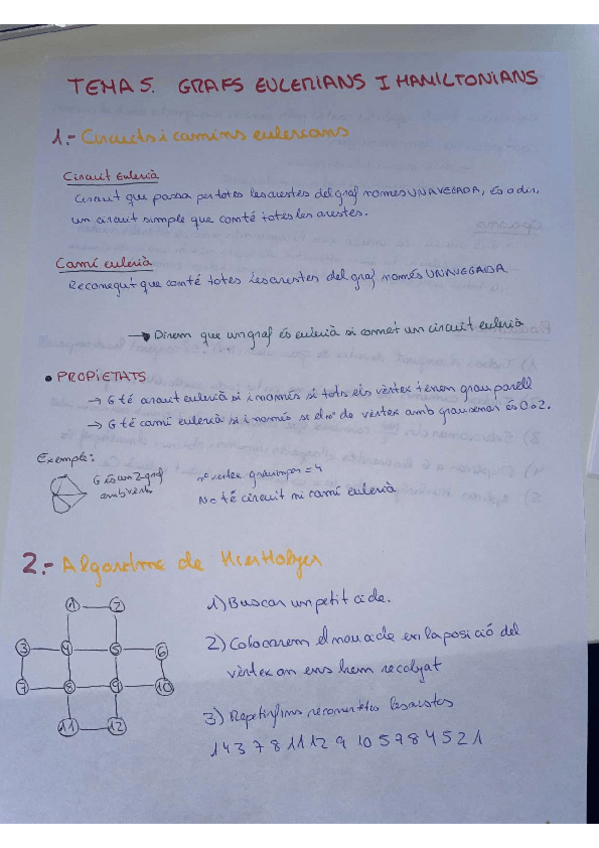 TEMA 5. GRAFS EULERIANS I HAMILTONIANS
1.- Circuits i camins eulerians
Circuit Eulerià
Circuit que passa per totes les arestes del graf només UNA VEGADA, és a dir,
un circuit simple que comté totes les arestes.
Camí eulerià
Recorregut que comté totes les arestes del graf només UNA VEGADA
Direm que un graf és eulerià si comet un circuit eulerià
• PROPIETATS
→ G té circuit eulerià si i només si tots els vèrtex tenem grau parell
→ G té camí eulerià si i només se el nº de vèrtex amb grau senar és 0 o 2.
Exemple:
G és un 2-graf
amb vèrt.
nº vertex grau impar = 4
No té circuit ni camí eulerià
2.- Algorstme de Hierholzer
1) Buscar un petit cicle.
2) Colocarem el nou cicle en la posició del
vèrtex on ens hem recolzat
3) les arestes
1 4 3 7 8 11 12 9 10 5 7 8 4 5 2 1
1 2
3 4 5 6
7 8 9 10
11 12